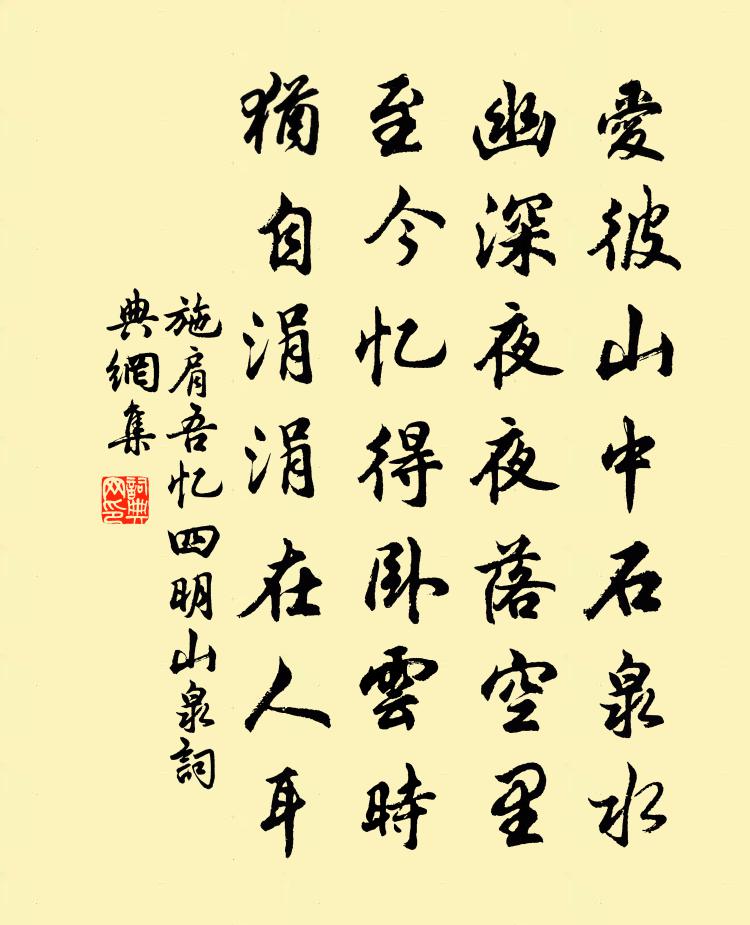 愛彼山中石泉水
幽深夜夜落空里
至今忆得卧雲時
猶自涓涓在人耳
施肩吾忆四明山泉詞
典網集
詞典網印